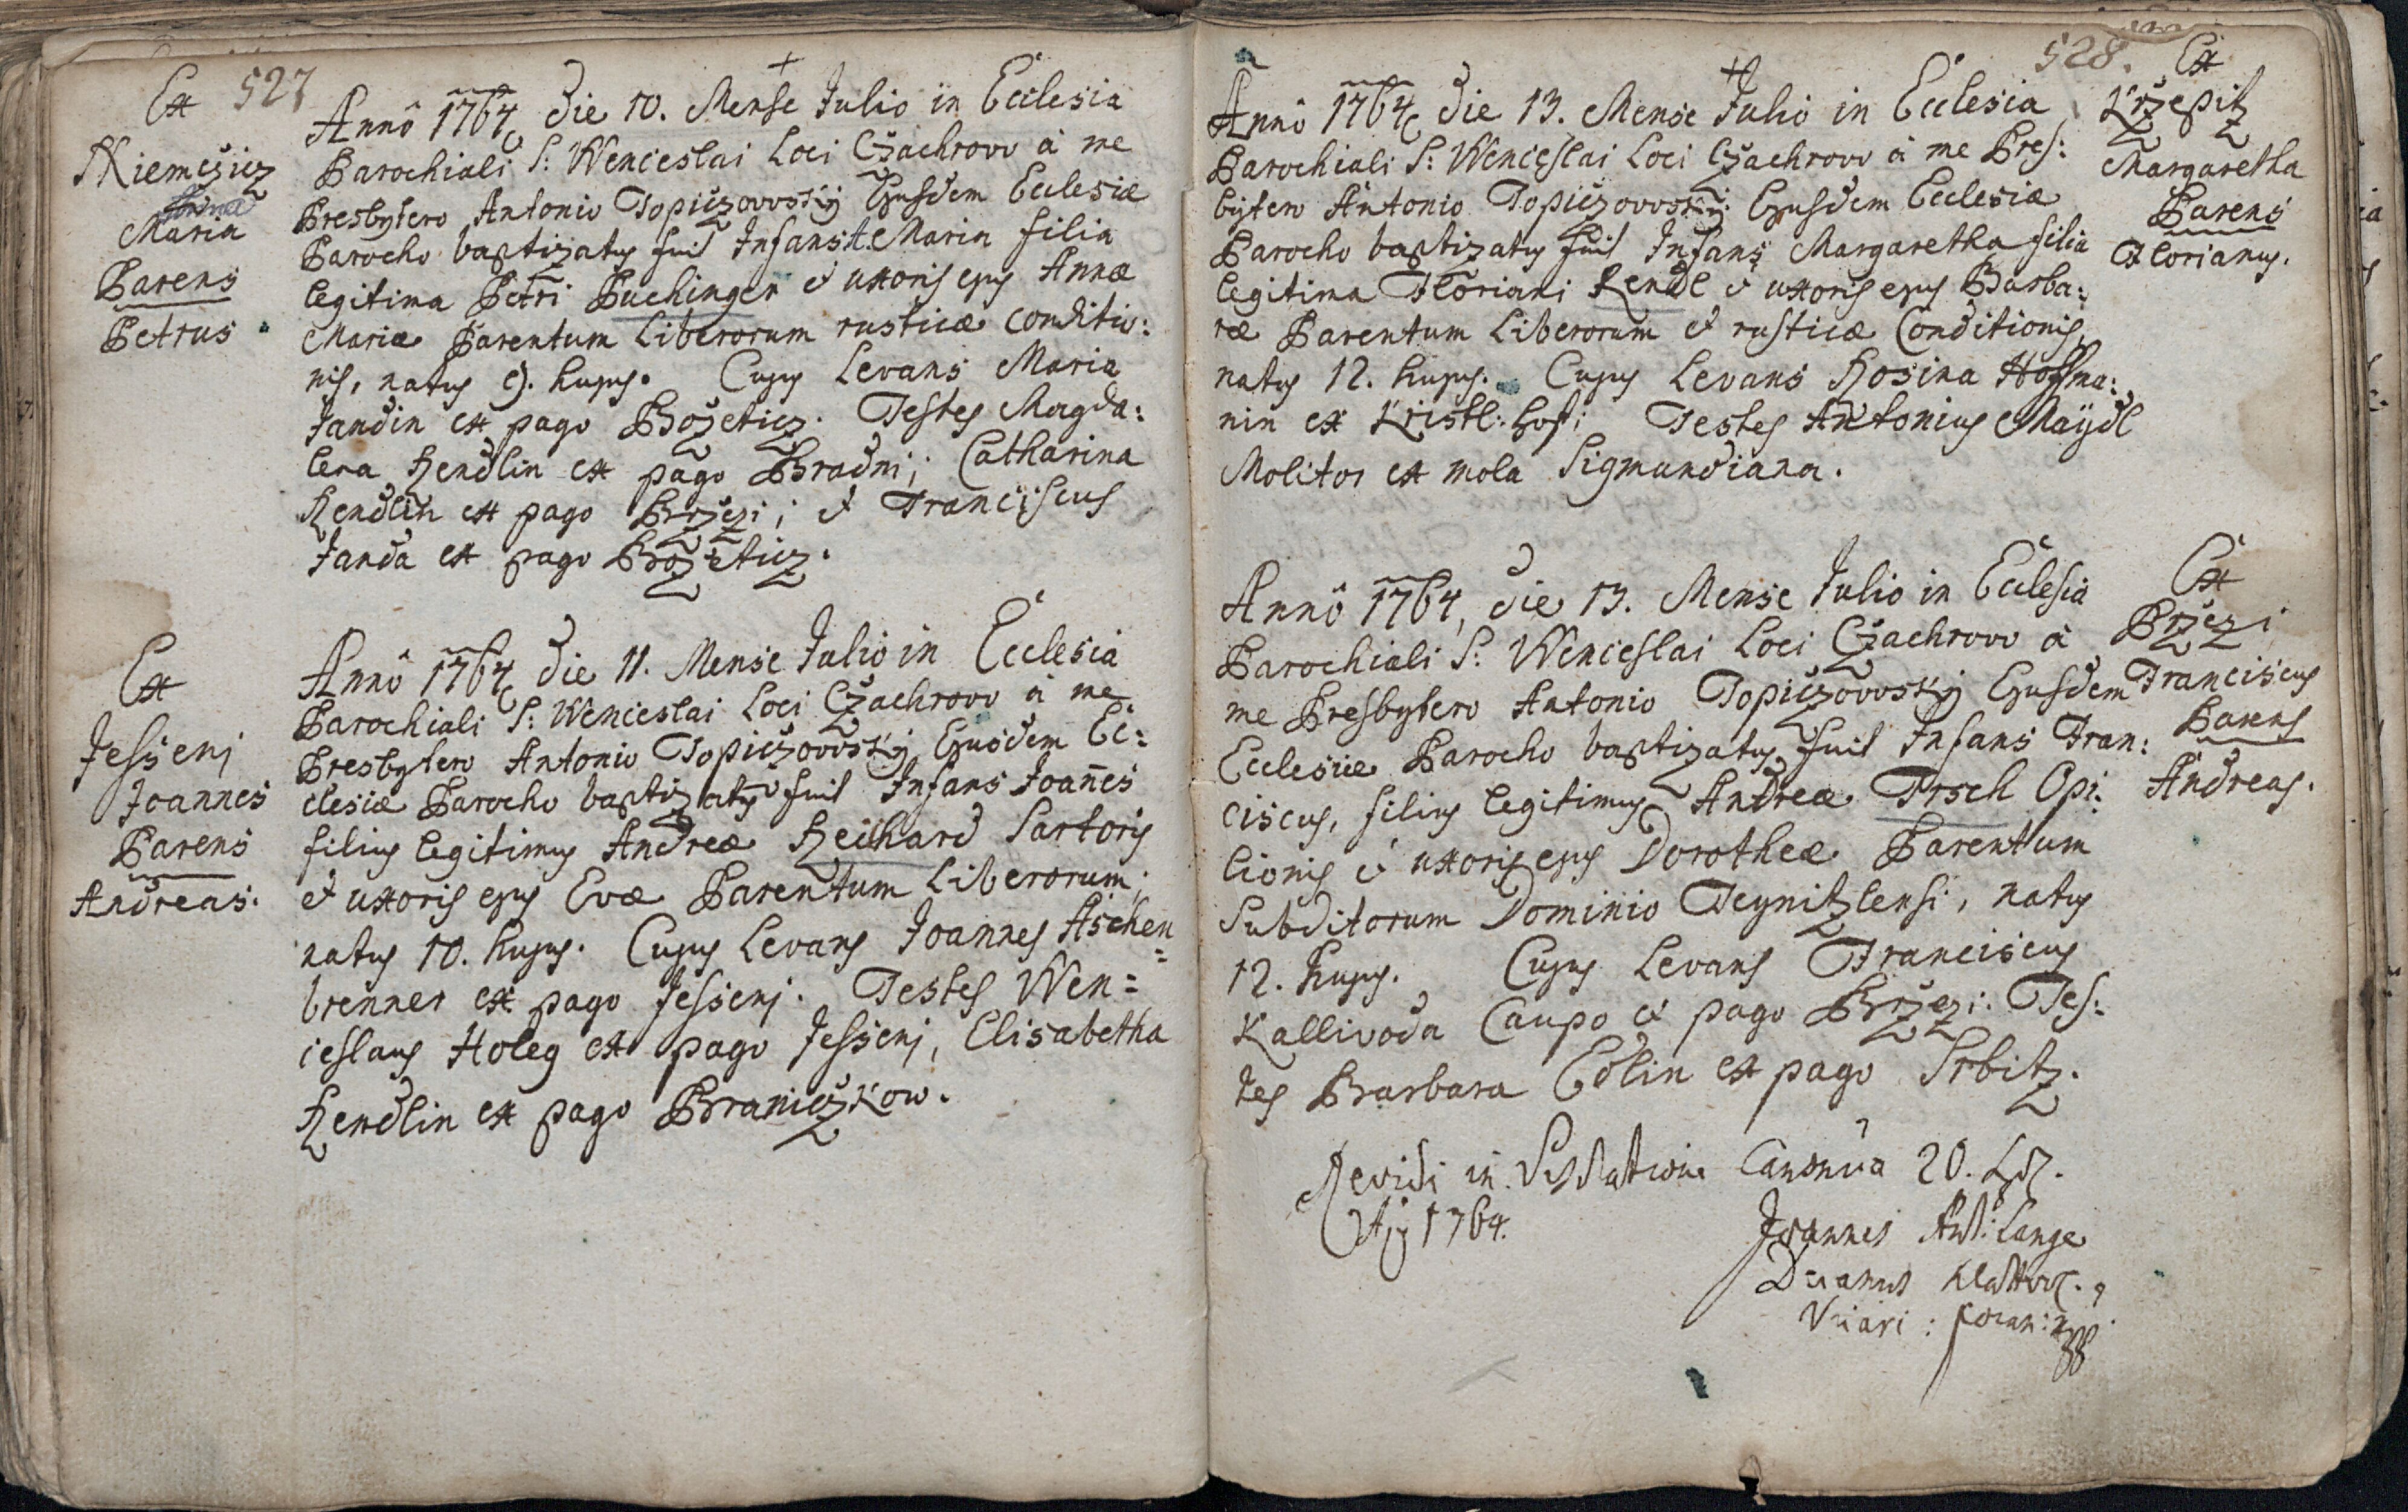 527
Ex
Niemcžicz
Maria
Parens
Petrus
Annô 1764, die 10. Mense Julio in Ecclesia
Parochiali S: Wenceslai Loci Cžachrow à me
Presbytero Antonio Topičzowský Ejusdem Ecclesiæ
Parocho baptizatus fuit Infans A. Maria filia
legitima Petri Puchinger et uxoris ejus Annæ
Mariæ Parentum Liberorum rusticæ conditio:
nis, natus 9. hujus. Cujus Levans Maria
Jandin ex pago Božeticz. Testes Magda:
lena Rendlin ex pago Bradni; Catharina
Rendlin ex pago Bržezi; et Franciscus
Janda ex pago Božeticz.
Ex
Jesseni
Joannes
Parens
Andreas.
Annô 1764, die 11. Mense Julio in Ecclesia
Parochiali S: Wenceslai Loci Cžachrow à me
Presbytero Antonio Topičzowský Ejusdem Ec:
clesiæ Parocho baptizatus fuit Infans Joañes
filius legitimus Andreæ Reichard Sartoris
et uxoris ejus Evæ Parentum Liberorum;
natus 10. hujus. Cujus Levans Joannes Aschen
brenner ex pago Jessenj. Testes Wen=
ceslaus Holeg ex pago Jessenj, Elisabetha
Rendlin ex pago Braničzkow.
528.
Annô 1764, die 13. Mense Julio in Ecclesia
Parochiali S: Wenceslai Loci Cžachrow à me Pres:
bytero Antonio Topičzowský Ejusdem Ecclesiæ
Parocho baptizatus fuit Infans Margaretha filia
legitima Floriani Rendl et uxoris ejus Barba:
ræ Parentum Liberorum et rusticæ Conditionis,
natus 12. hujus. Cujus Levans Rosina Hoffma:
nin ex Kristl: hof; Testes Antonius Maÿdl
Molitor ex mola Sigmundiana.
Ex
Kržepitz
Margaretha
Parens
Florianus.
Annô 1764, die 13. Mense Julio in Ecclesia
Parochiali S: Wenceslai Loci Cžachrow à
me Presbytero Antonio Topičzowský Ejusdem
Ecclesiæ Parocho baptizatus fuit Infans Fran:
ciscus, filius legitimus Andreæ Irsch Opi:
lionis et uxoris ejus Dorotheæ Parentum
Subditorum Dominio Teynitzlensi, natus
12. hujus. Cujus Levans Franciscus
Kallivoda Caupo ex pago Bržezi. Tes:
tes Barbara Edlin ex pago Srbitz.
Ex
Bržezi
Franciscus
Parens
Andreas.
Revidi in Visitatione Canonica 20.
1764.
Joannes Ant: Lange
Decanus